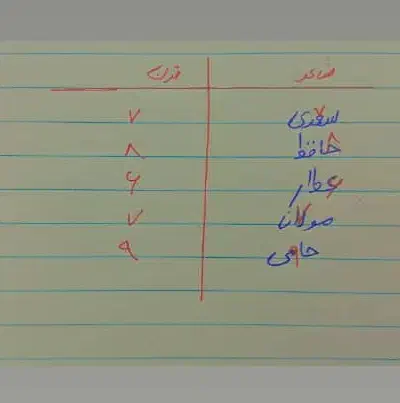 شاعر قرن
سعدی ۷
حافظ ۸
عطار ۶
مولانا ۷
جامی ۹